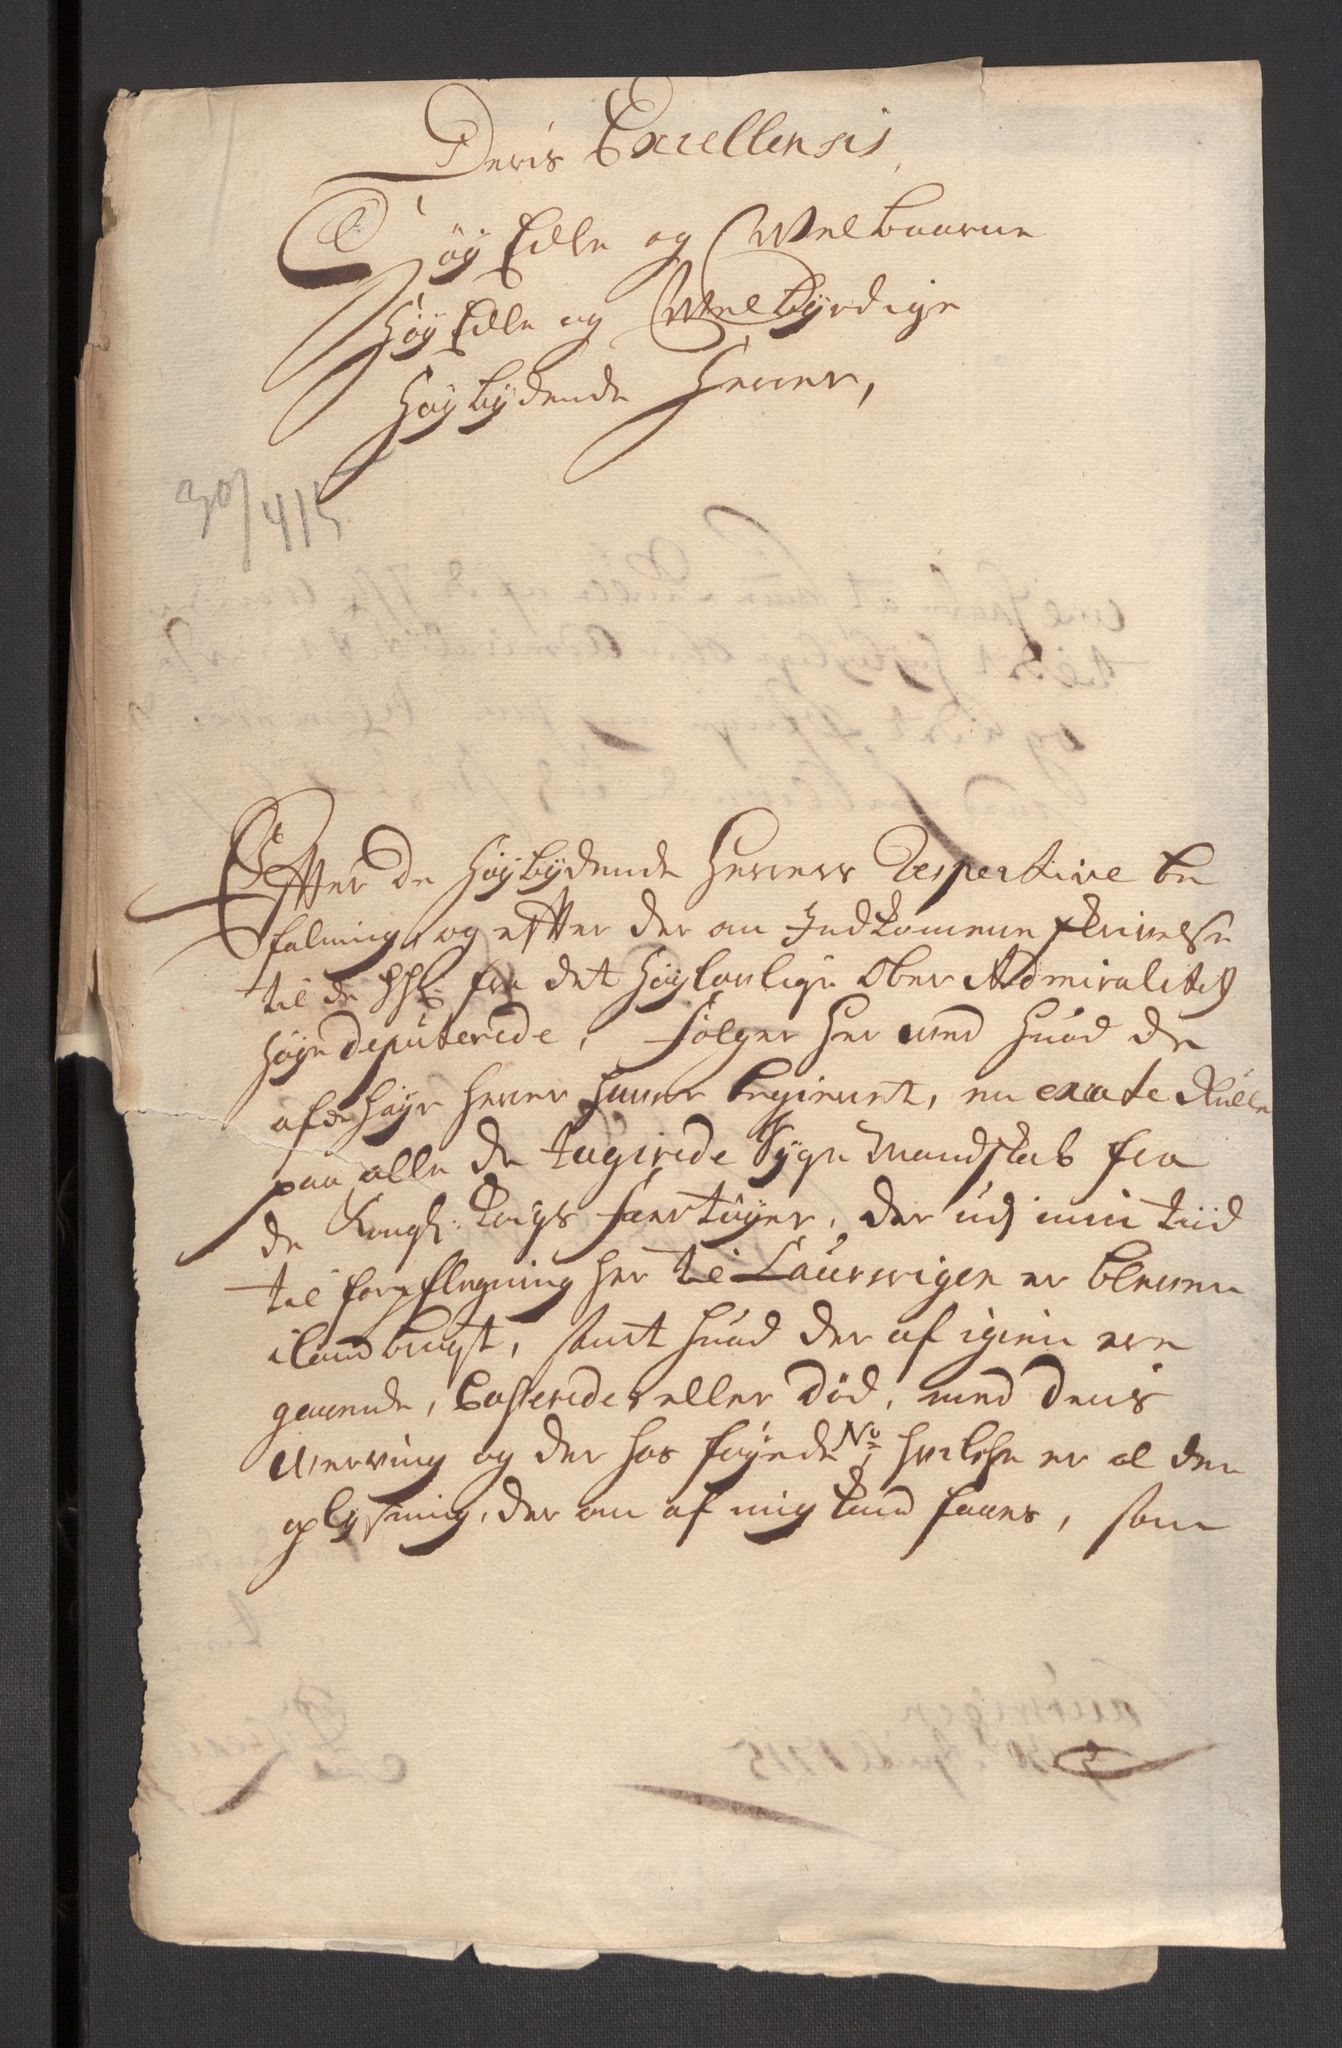 Deris Excellensis
Høy Edle og Welbaarne
Høy Edle og Welbyrdige
Høybydende Herrer,
30/4 15
Effter De Høybydende Herrers Respective be
falning, og effter der om Indkomene skrivelse
til de HH: fra det Høylovlige Ober Admiralitetz
Høye deputerede, følger her med huad de
af de høye Herrer haver begieret, en exacte Rulle
paa alle de syge Mandskab fra
de Kongl: Krigs fartøyer, der udj min tiid
til forpflegning her til Laurwigen er blewen
iland bragt, samt huad der af igien ere
gaaende, Casserede eller død, med deris
Werving og der hos føyede No, hvilche er al den
oplysning, der om af mig kand faaes, som